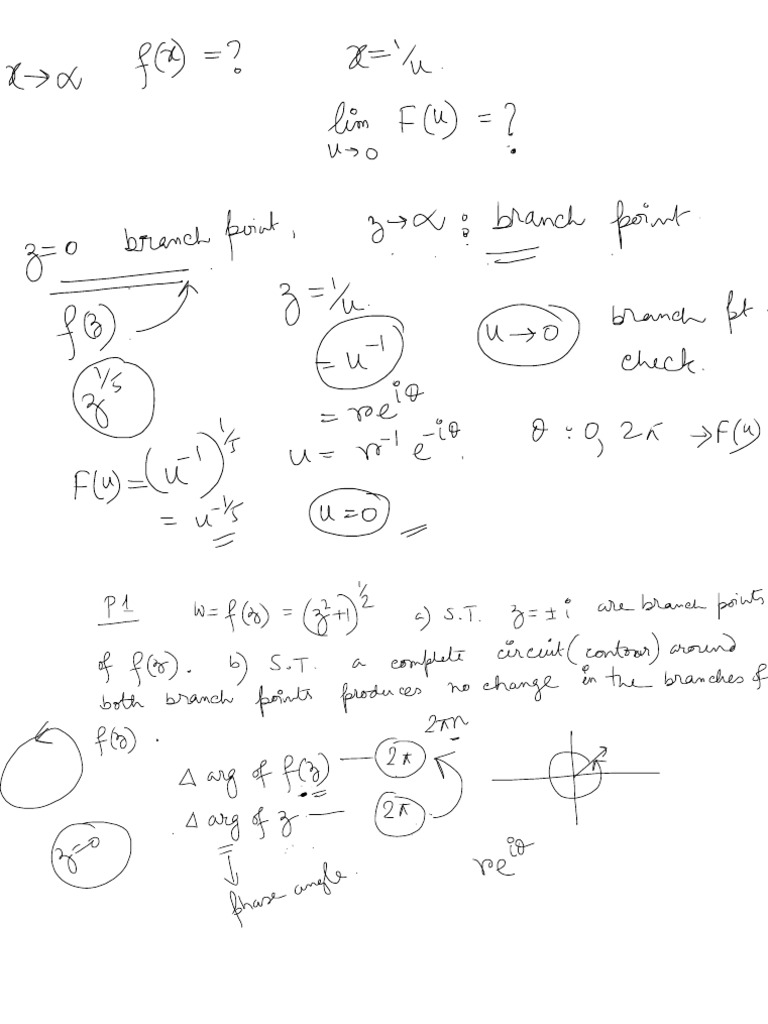 x→∝ f(x) = ? x = 1/u.
lim F(u) = ?
u→0
z=0 branch point, z→∝ : branch point.
f(z) z = 1/u.
z^{1/5} = u^{-1} u→0 branch pt.
check.
= re^{iθ}
F(u) = (u^{-1})^{1/5} u = r^{-1} e^{-iθ}. θ : 0, 2π → F(u)
= u^{-1/5} u=0
P1 w = f(z) = (z²+1)^{1/2} a) S.T. z = ± i are branch points
of f(z). b) S.T. a complete circuit (contour) around
both branch points produces no change in the branches of
f(z).
2πn
Δ arg of f(z) — 2π
Δ arg of z — 2π
z=0
phase angle.
re^{iθ}